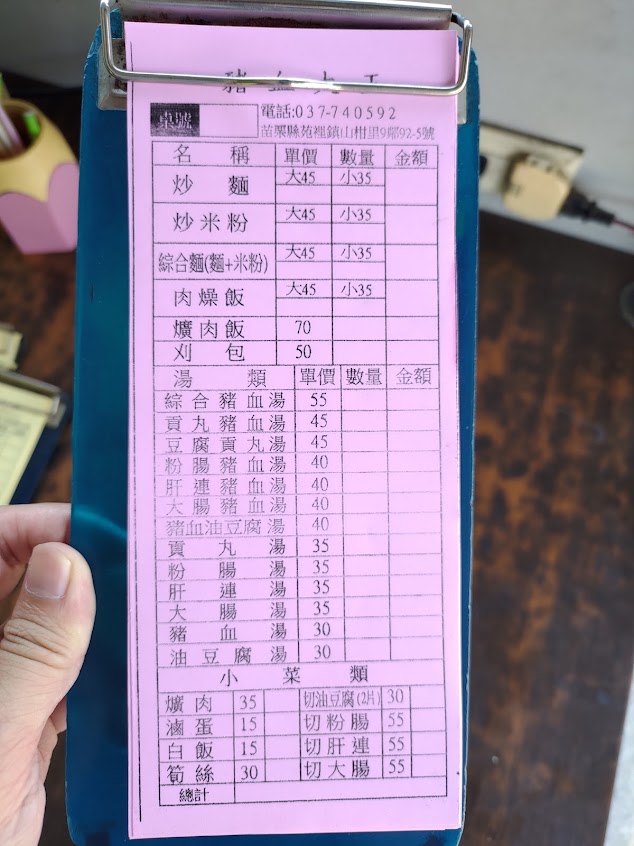 豬血大王
桌號
電話:037-740592
苗栗縣苑裡鎮山柑里9鄰92-5號
名 稱 單價 數量 金額
炒 麵 大45 小35
炒米粉 大45 小35
綜合麵(麵+米粉) 大45 小35
肉燥飯 大45 小35
爌肉飯 70
刈 包 50
湯 類 單價 數量 金額
綜合豬血湯 55
貢丸豬血湯 45
豆腐貢丸湯 45
粉腸豬血湯 40
肝連豬血湯 40
大腸豬血湯 40
豬血油豆腐湯 40
貢 丸 湯 35
粉 腸 湯 35
肝 連 湯 35
大 腸 湯 35
豬 血 湯 30
油豆腐湯 30
小 菜 類
爌肉 35 切油豆腐(2片) 30
滷蛋 15 切粉腸 55
白飯 15 切肝連 55
筍絲 30 切大腸 55
總計